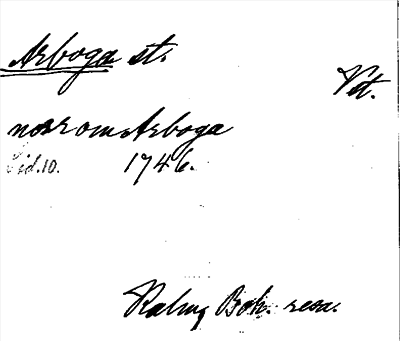 Arboga st.
Vst.
norr om Arboga
Sid. 10. 1746.
Kalm, Boh. resa.